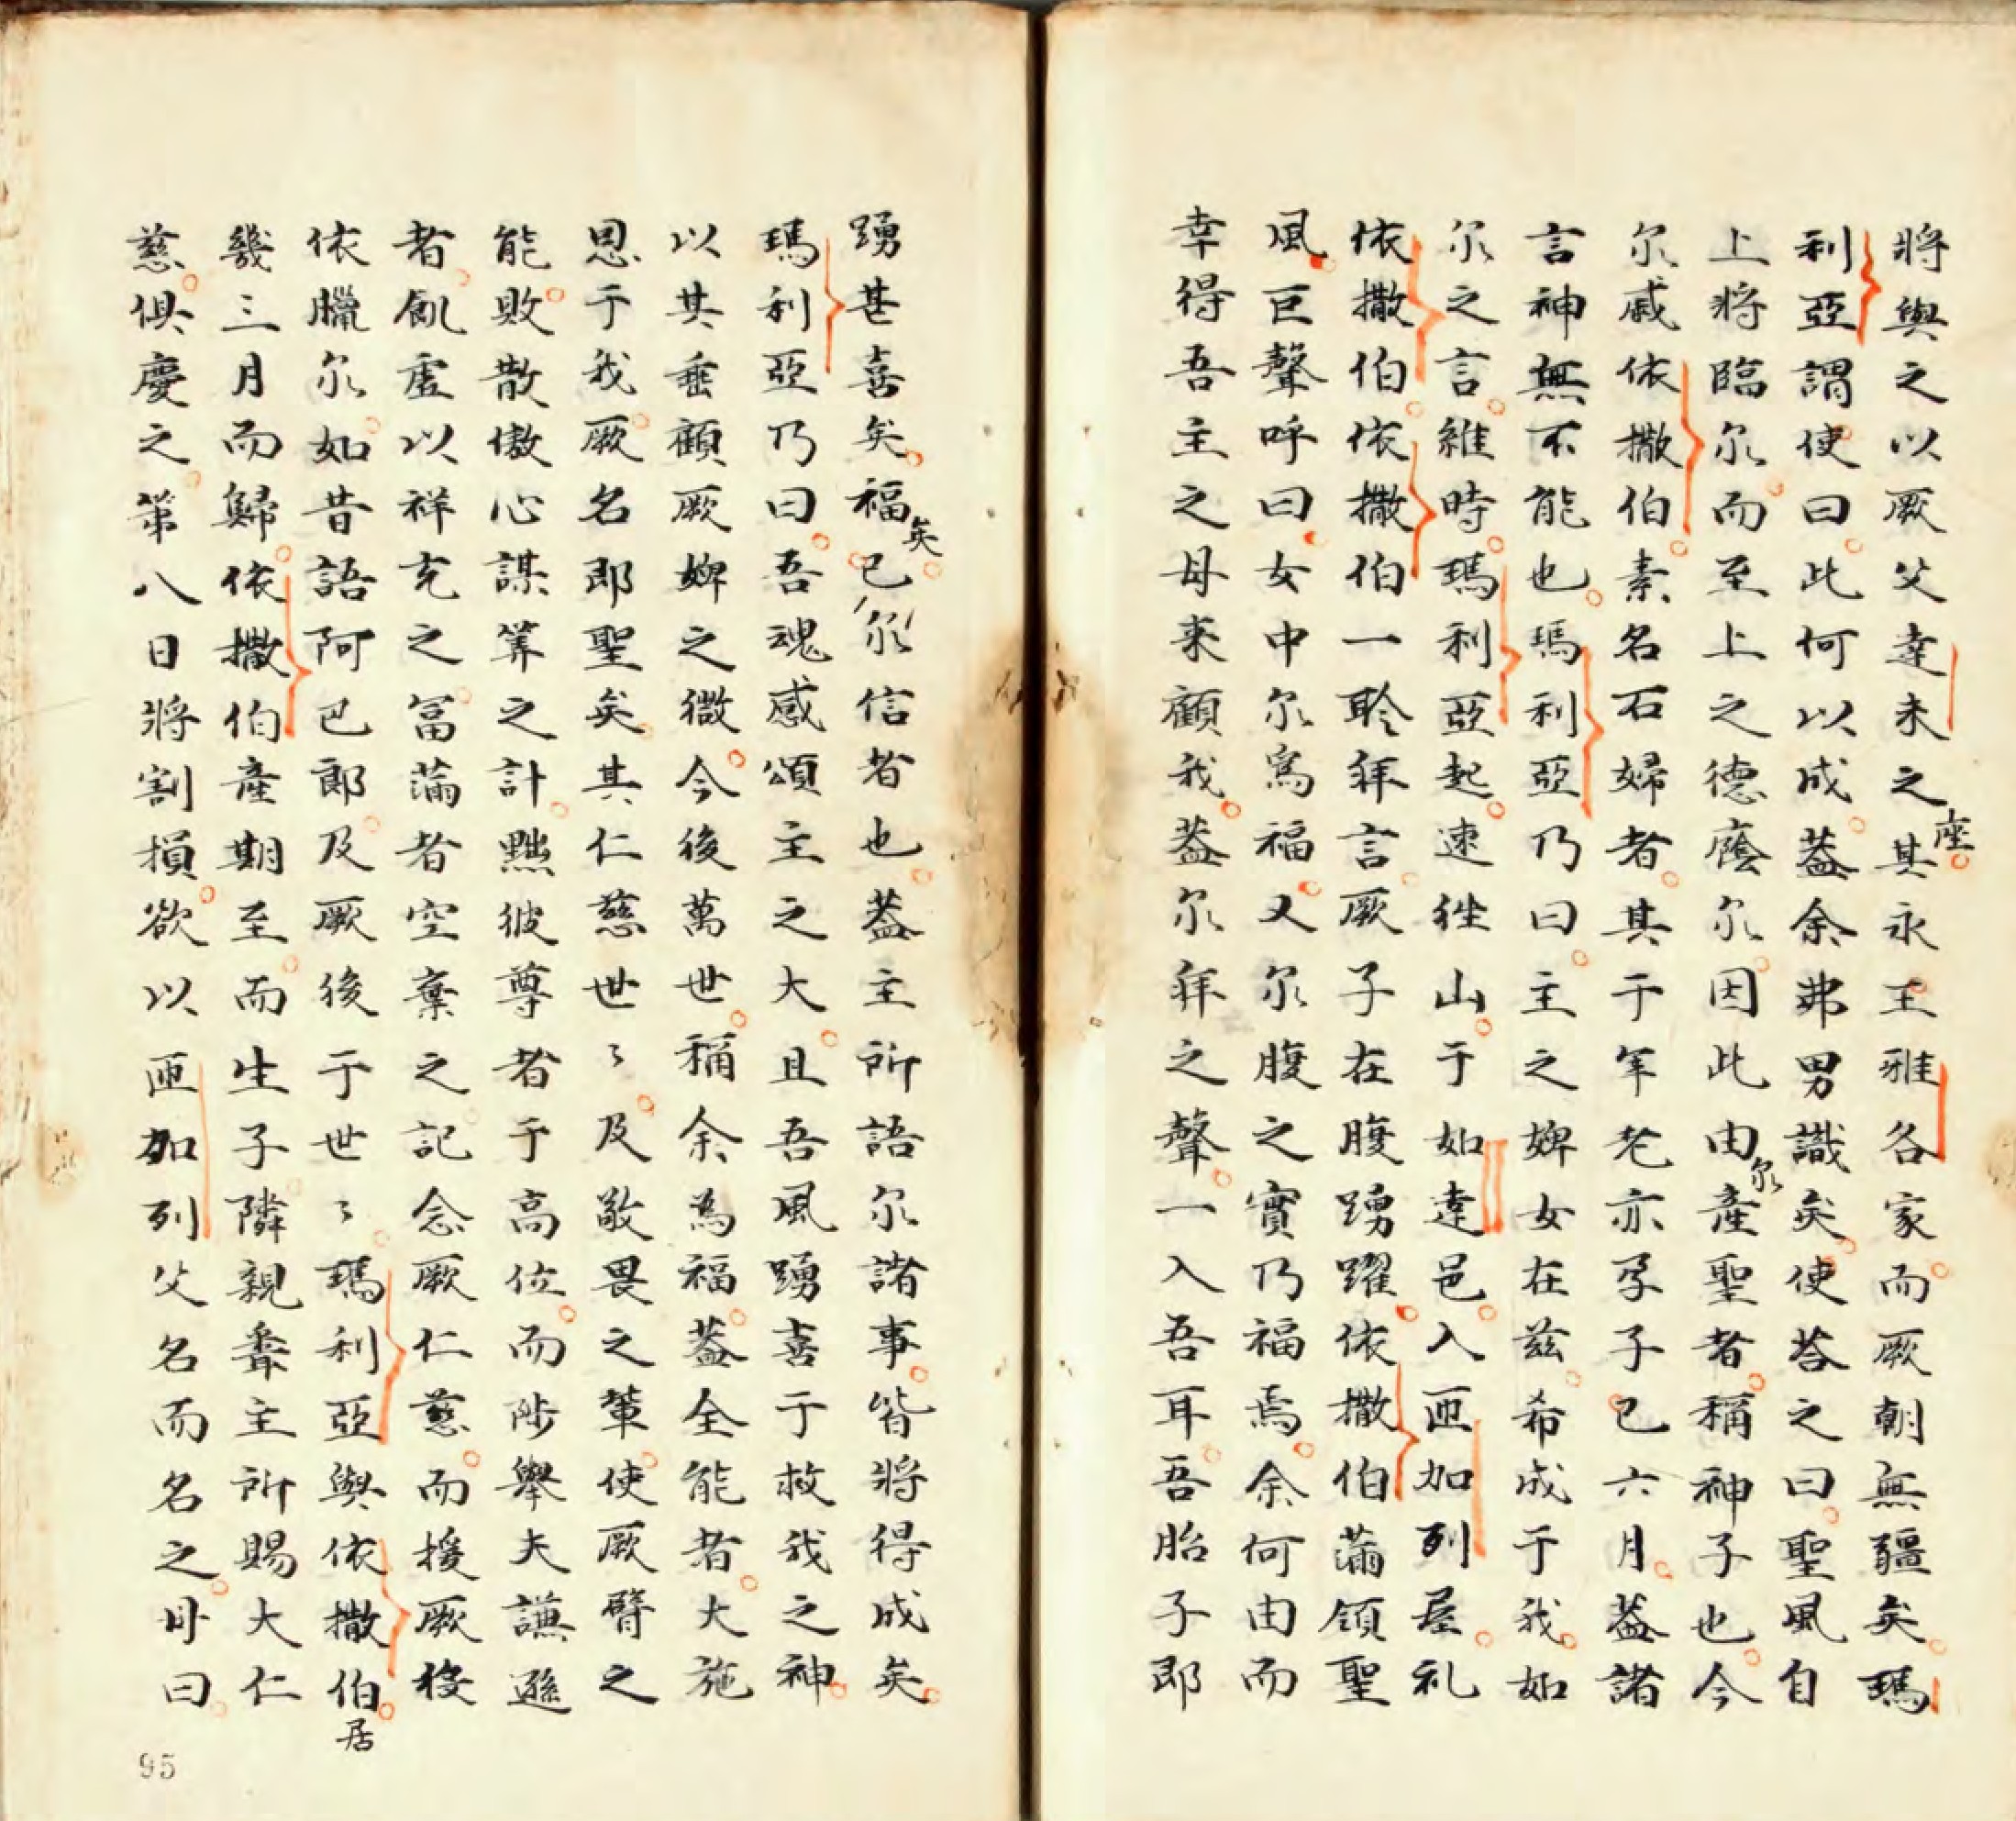 將與之以厥父達未之座其永王雅各家而厥朝無疆矣瑪
利亞謂使曰此何以成蓋余弗男識矣使荅之曰聖風自
上將臨尔而至上之德廕尔因此由尔產聖者稱神子也今
尔戚依撒伯素名石婦者其于年老亦孕子已六月蓋諸
言神無不能也瑪利亞乃曰主之婢女在兹希成于我如
尔之言維時瑪利亞起速徃山于如達邑入匝加列屋礼
依撒伯依撒伯一聆拜言厥子在腹踴躍依撒伯滿領聖
風巨聲呼曰女中尔為福又尔腹之實乃福焉余何由而
幸得吾主之母来顧我蓋尔拜之聲一入吾耳吾胎子即
踴甚喜矣福矣已尔信者也蓋主所語尔諸事皆將得成矣
瑪利亞乃曰吾魂感頌主之大且吾風踴喜于救我之神
以其垂顧厥婢之微今後萬世稱余為福蓋全能者大施
恩于我厥名即聖矣其仁慈世〻及敬畏之輩使厥臂之
能敗散傲心謀筭之計黜彼尊者于高位而陟舉夫謙遜
者飢虛以祥充之冨滿者空棄之記念厥仁慈而援厥役
依臘尔如昔語阿巴郎及厥後于世〻瑪利亞與依撒伯居
幾三月而歸依撒伯產期至而生子隣親聞主所賜大仁
慈俱慶之第八日將割損欲以匝加列父名而名之母曰
95